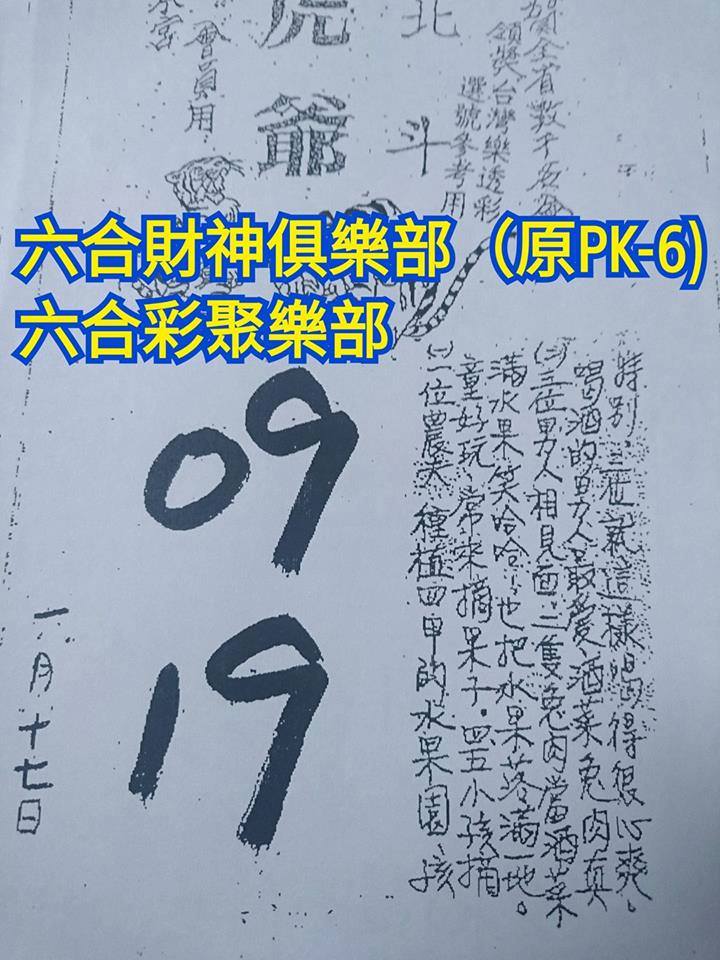 領獎台灣樂透彩
選號參考用
北斗
虎爺
會員用
六合財神俱樂部（原PK-6)
六合彩聚樂部
09
19
㈠一位農夫種植四甲的水果園、孩
童好玩、常來摘果子。四五小孩摘
滿水果笑哈哈、也把水果落滿一地。
三位男人相見面、二隻兔肉當酒菜
喝酒的男人最愛、酒菜兔肉真
特別、三位就這樣喝得很心爽。
一月十七日